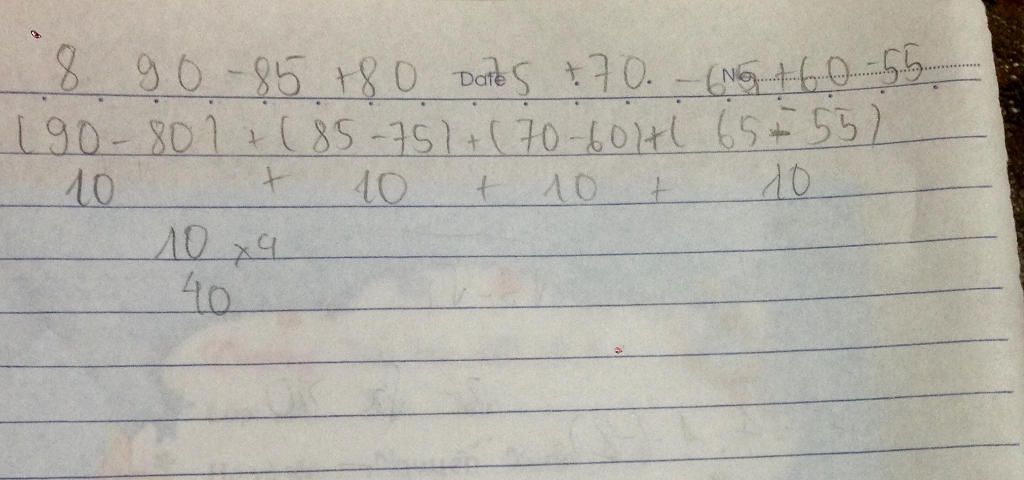 8. 90 - 85 + 80 - 75 + 70. - 65 + 60 - 55
Date No
(90 - 80) + (85 - 75) + (70 - 60) + ( 65 - 55)
10 + 10 + 10 + 10
10 x 4
40